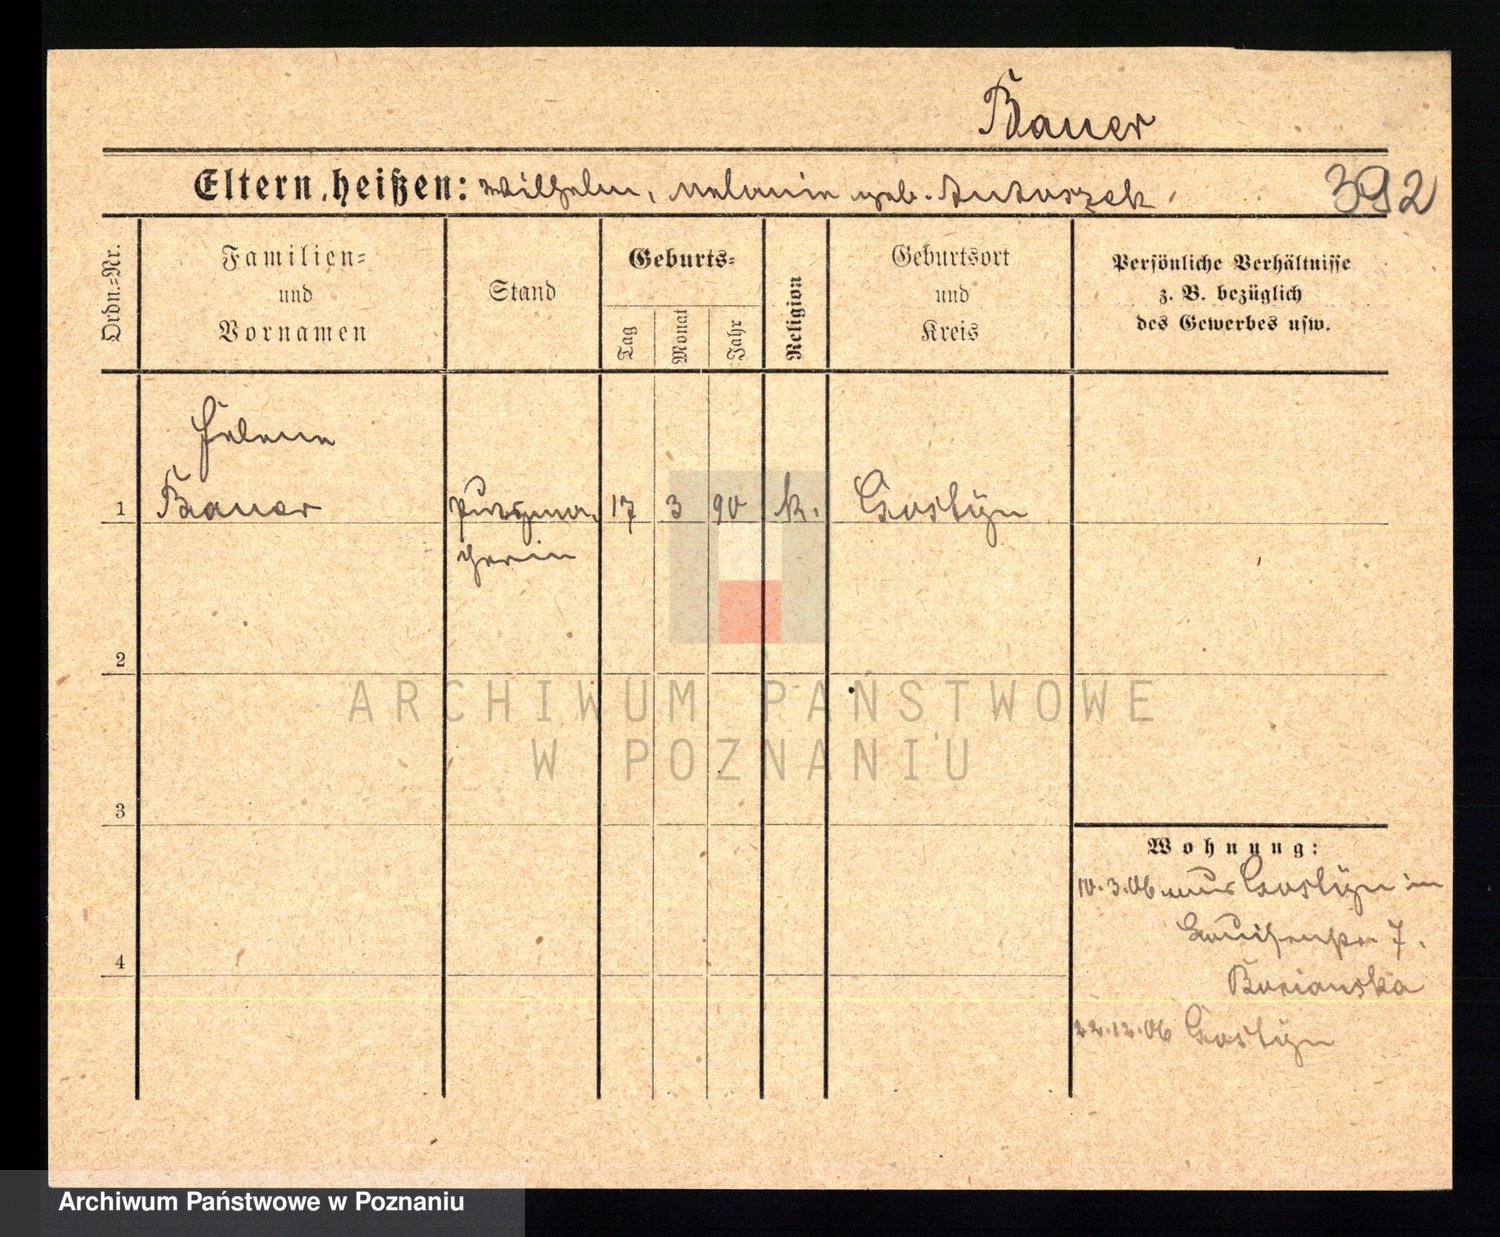 Bauer
Eltern heißen: Wilhelm, Melanie geb.
392
Ordn.-Nr.
Familien-
und
Vornamen
Stand
Geburts-
Tag
Monat
Jahr
Religion
Geburtsort
und
Kreis
Persönliche Verhältnisse
z. B. bezüglich
des Gewerbes usw.
Helene
1 Bauer Putzma- 17 3 90 k. Gostyn
cherin
2
ARCHIWUM PAŃSTWOWE
W POZNANIU
3
Wohnung:
10.3.06 aus Gostyn in
7.
4
22.12.06 Gostyn
Archiwum Państwowe w Poznaniu